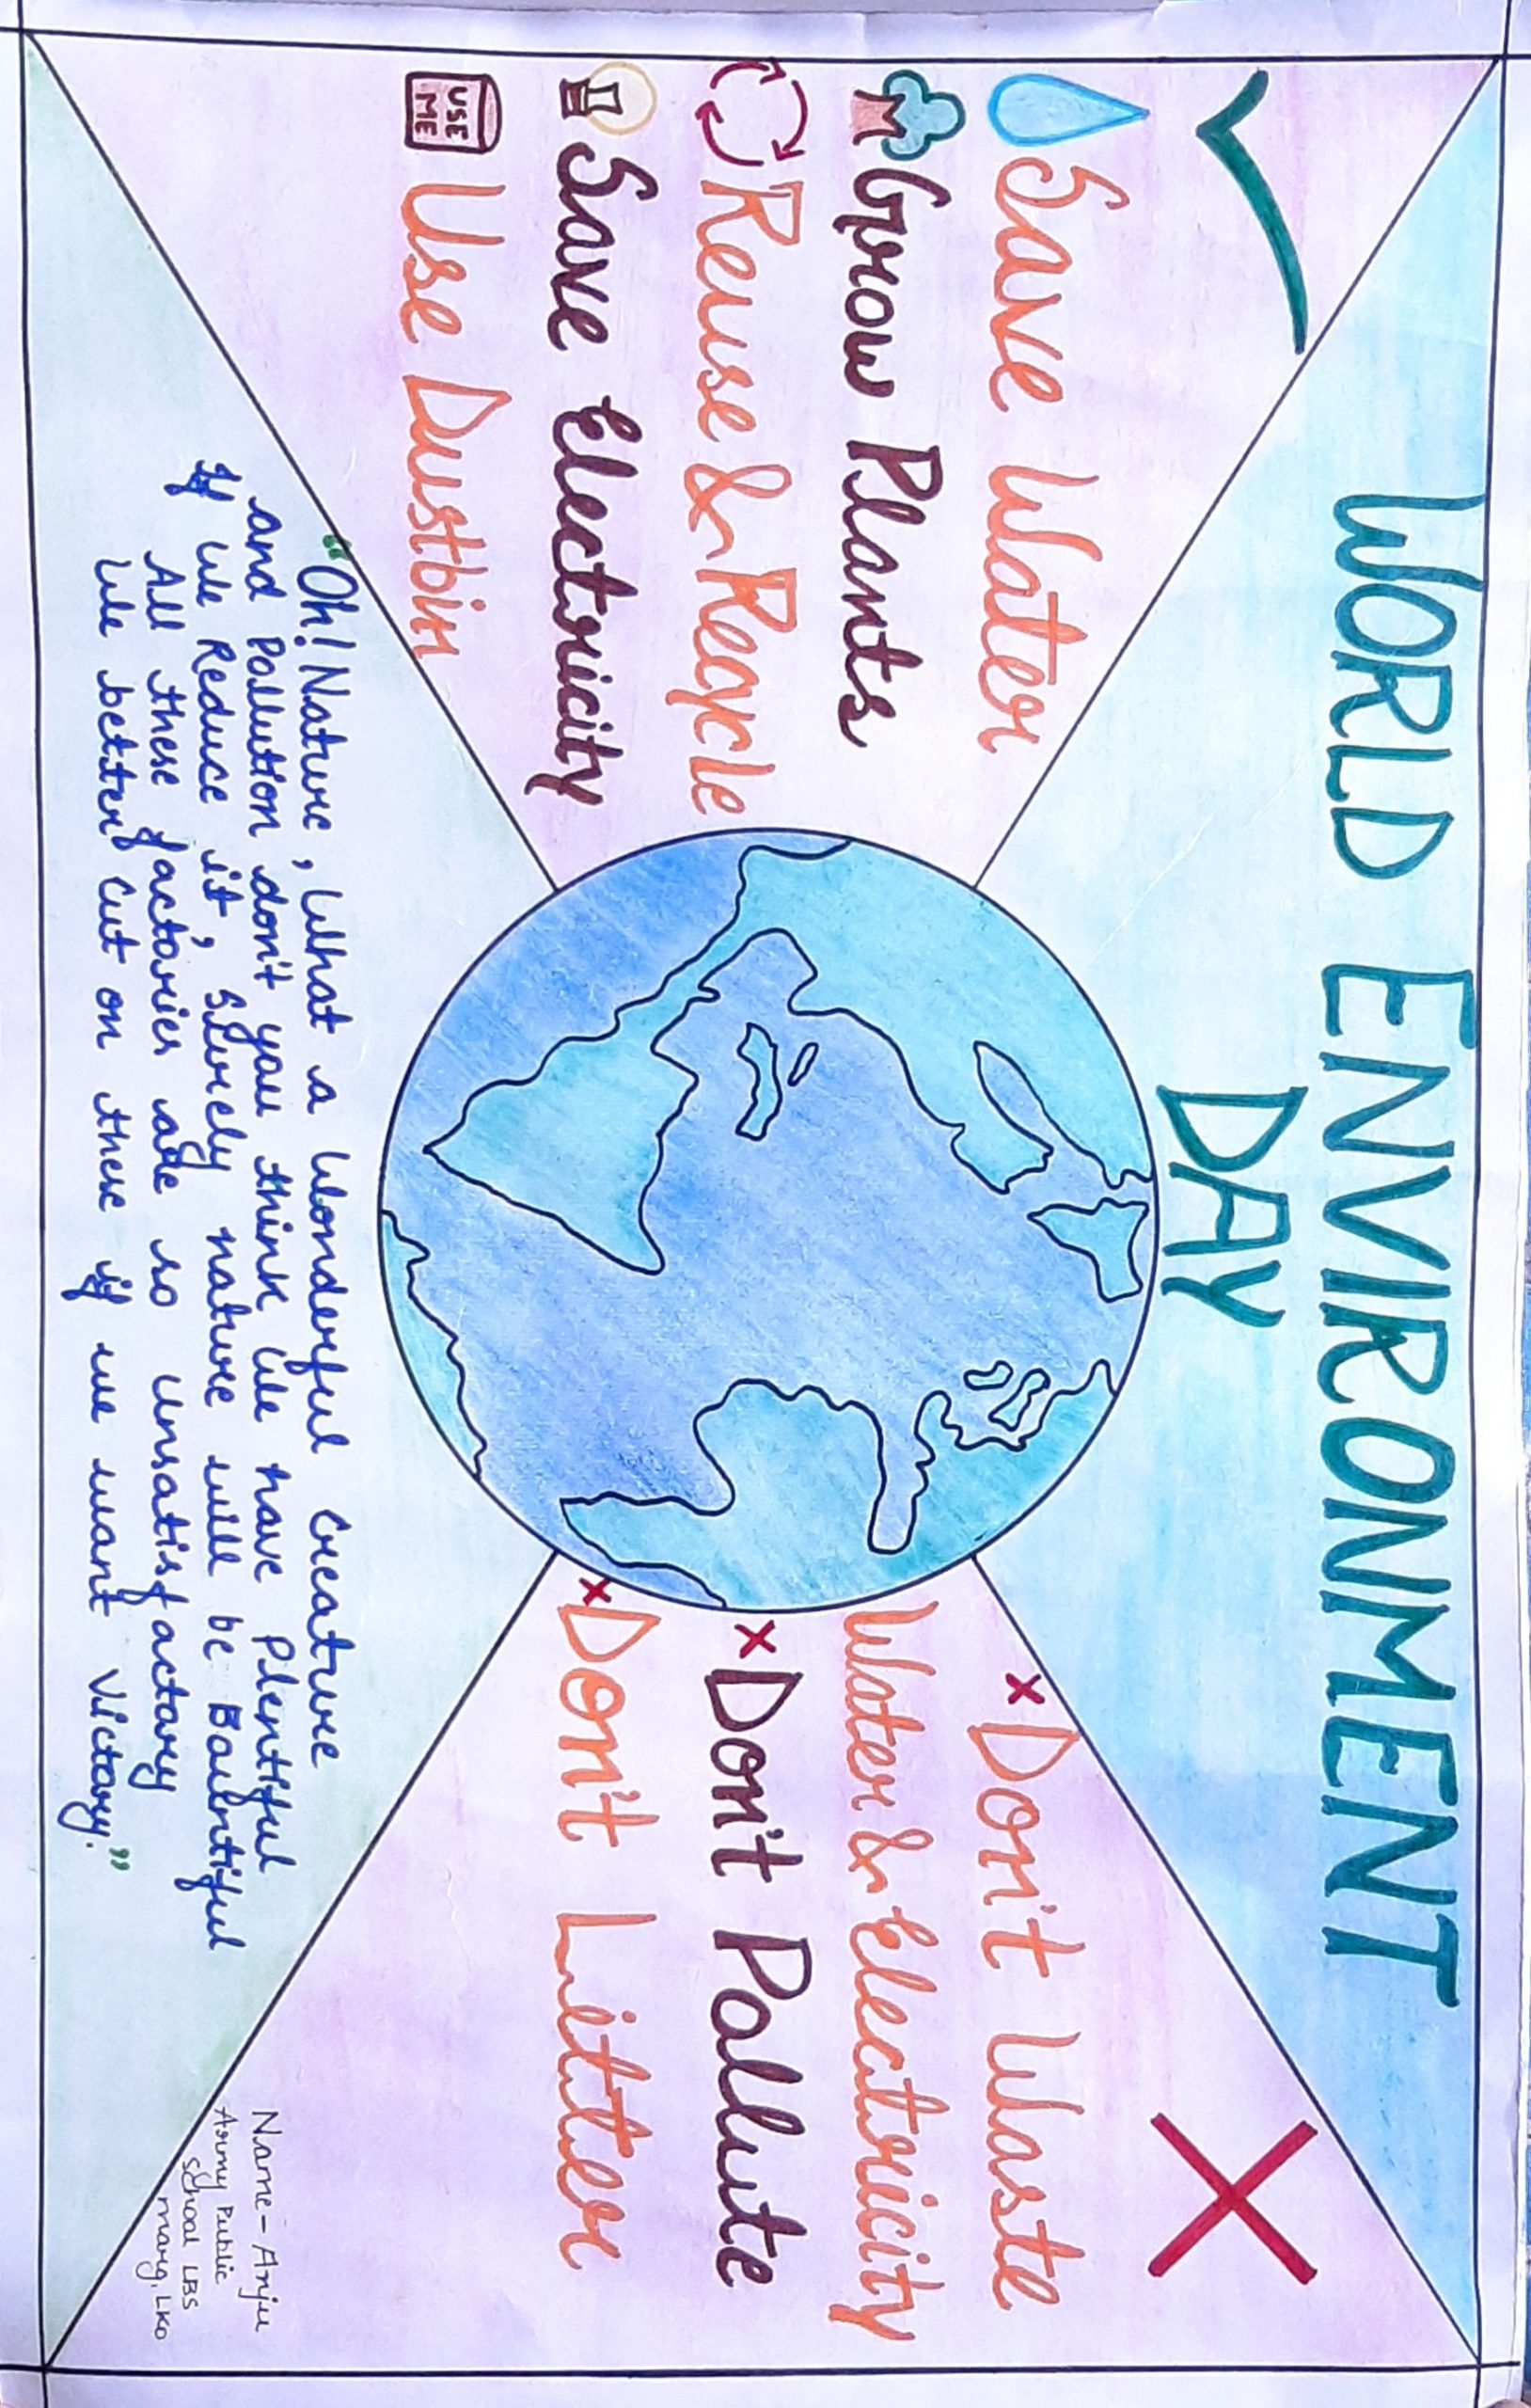 WORLD ENVIRONMENT
DAY
Save Water
Grow Plants
Reuse & Recycle
Save Electricity
USE
ME
Use Dustbin
Don't Waste
Water & Electricity
Don't Pollute
Don't Litter
"Oh! Nature, What a Wonderful Creature
and Pollution don't you think We have Plentiful
If We Reduce it, Surely nature will be Bauntiful
All these factories are so unsatisfactory
We better Cut on these if we want Victory."
Name- Anju
Army Public
School LBS
marg, LKO